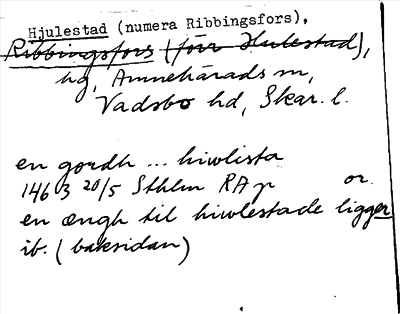 Hjulestad (numera Ribbingsfors),
Ribbingsfors (förr Hulestad),
hg, Amnehärads sn,
Vadsbo hd, Skar. l.
en gordh ... hiwlista
1463 20/5 Sthlm RAp or.
en ængh til hiwlestade ligger
ib. (baksidan)